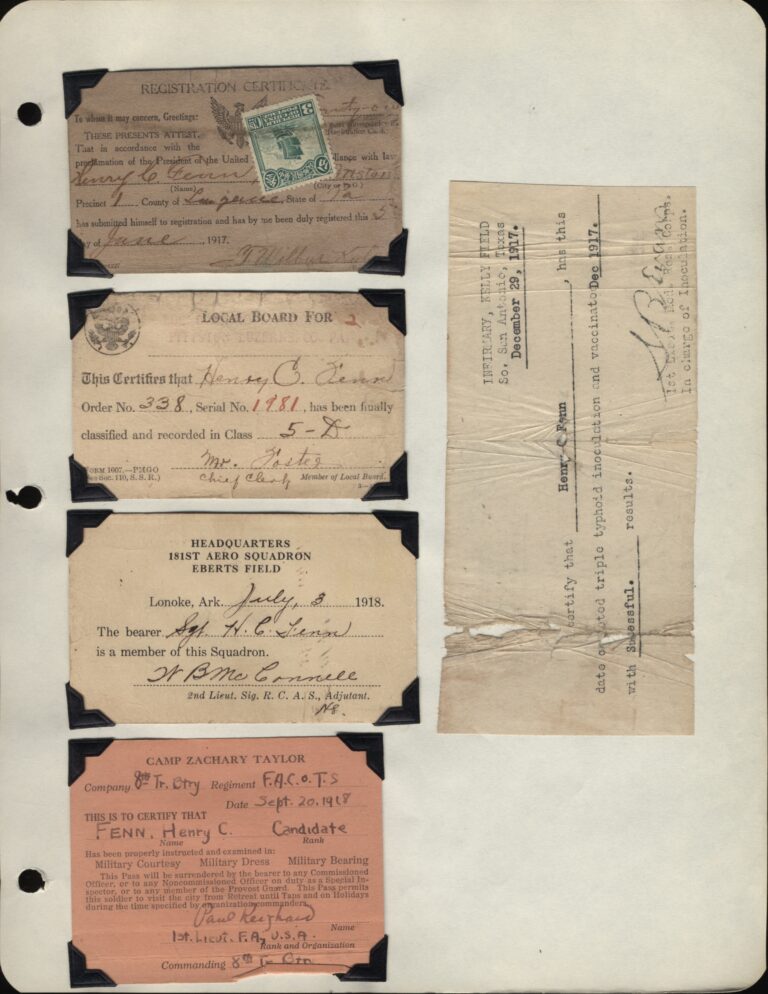 REGISTRATION CERTIFICATE
To whom it may concern, Greetings:
THESE PRESENTS ATTEST,
That in accordance with the
proclamation of the President of the United
liance with law
Henry C Fenn
(Name) (City or P.O.)
Precinct 1 County of Luzerne, State of Pa
has submitted himself to registration and has by me been duly registered this 5
of June, 1917.
LOCAL BOARD FOR 2
This Certifies that Henry C. Fenn
Order No. 338, Serial No. 1981, has been finally
classified and recorded in Class 5-D
Mr. Foster
FORM 1007.—PMGO
Sec. 110, S. S. R.)
Chief Clerk Member of Local Board.
HEADQUARTERS
181ST AERO SQUADRON
EBERTS FIELD
Lonoke, Ark. July, 3 1918.
The bearer Sgt. H. C. Fenn
is a member of this Squadron.
W B McConnell
2nd Lieut. Sig. R. C. A. S., Adjutant.
CAMP ZACHARY TAYLOR
Company 8th Tr. Btry Regiment F.A.C.O.T.S
Date Sept. 20, 1918
THIS IS TO CERTIFY THAT
FENN, Henry C. Candidate
Name Rank
Has been properly instructed and examined in:
Military Courtesy Military Dress Military Bearing
This Pass will be surrendered by the bearer to any Commissioned
Officer, or to any Noncommissioned Officer on duty as a Special In-
spector, or to any member of the Provost Guard. This Pass permits
this soldier to visit the city from Retreat until Taps and on Holidays
during the time specified by organization commanders.
Paul
Name
1st. Lieut. F.A, U.S.A.
Rank and Organization
Commanding 8th Tr Btry
INFIRMARY, KELLY FIELD
So. San Antonio, Texas
December 29, 1917.
certify that Henry C Fenn, has this
date completed triple typhoid inoculation and vaccinato Dec 1917.
with Sucessful. results.
1st Lieut. Med. Res. Corps.
In charge of Inoculation.